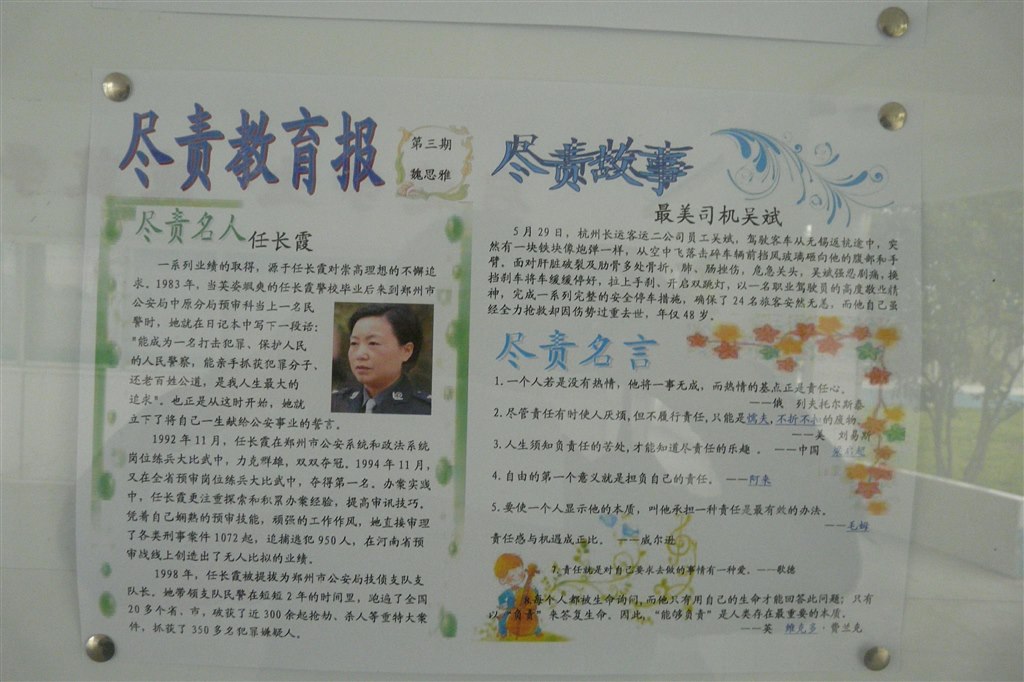 尽责教育报
第三期
魏思雅
尽责名人 任长霞
一系列业绩的取得，源于任长霞对崇高理想的不懈追
求。1983年，当英姿飒爽的任长霞警校毕业后来到郑州市
公安局中原分局预审科当上一名民
警时，她就在日记本中写下一段话：
"能成为一名打击犯罪、保护人民
的人民警察，能亲手抓获犯罪分子、
还老百姓公道，是我人生最大的
追求"。也正是从这时开始，她就
立下了将自己一生献给公安事业的誓言。
1992年11月，任长霞在郑州市公安系统和政法系统
岗位练兵大比武中，力克群雄，双双夺冠。1994年11月，
又在全省预审岗位练兵大比武中，夺得第一名。办案实践
中，任长霞更注重探索和积累办案经验，提高审讯技巧。
凭着自己娴熟的预审技能，顽强的工作作风，她直接审理
了各类刑事案件1072起，追捕逃犯950人，在河南省预
审战线上创造出了无人比拟的业绩。
1998年，任长霞被提拔为郑州市公安局技侦支队支
队长。她带领支队民警在短短2年的时间里，跑遍了全国
20多个省、市，破获了近300余起抢劫、杀人等重特大案
件，抓获了350多名犯罪嫌疑人。
尽责故事
最美司机吴斌
5月29日，杭州长运客运二公司员工吴斌，驾驶客车从无锡返杭途中，突
然有一块铁块像炮弹一样，从空中飞落击碎车辆前挡风玻璃砸向他的腹部和手
臂。面对肝脏破裂及肋骨多处骨折，肺、肠挫伤，危急关头，吴斌强忍剧痛，换
挡刹车将车缓缓停好，拉上手刹、开启双跳灯，以一名职业驾驶员的高度敬业精
神，完成一系列完整的安全停车措施，确保了24名旅客安然无恙，而他自己虽
经全力抢救却因伤势过重去世，年仅48岁。
尽责名言
1.一个人若是没有热情，他将一事无成，而热情的基点正是责任心。
——俄 列夫托尔斯泰
2.尽管责任有时使人厌烦，但不履行责任，只能是懦夫，不折不扣的废物。
——美 刘易斯
3.人生须知负责任的苦处，才能知道尽责任的乐趣 。 ——中国
4.自由的第一个意义就是担负自己的责任。 ——阿来
5.要使一个人显示他的本质，叫他承担一种责任是最有效的办法。
——毛姆
责任感与机遇成正比。 ——威尔逊
7.责任就是对自己要求去做的事情有一种爱。——歌德
每个人都被生命询问，而他只有用自己的生命才能回答此问题；只有
以"负责"来答复生命。因此，"能够负责"是人类存在最重要的本质。
——英 维克多·费兰克